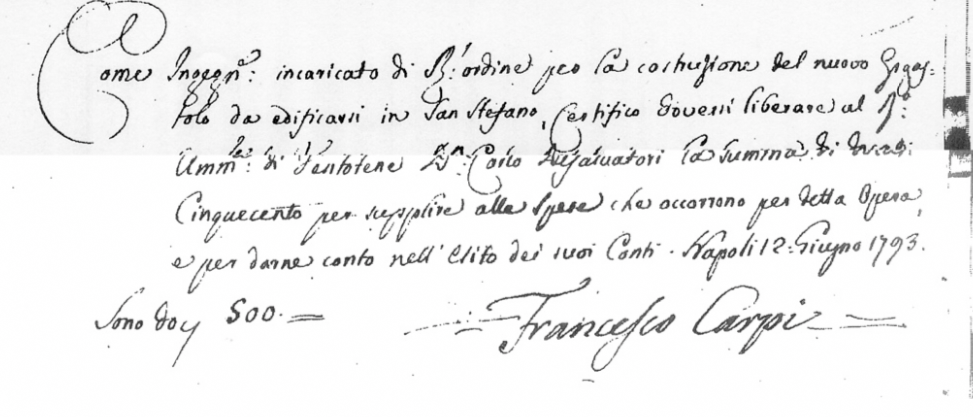 Come Ingegn.e: incaricato di R.l ordine per la costruzione del nuovo Ergas=
tolo da edificarsi in San Stefano, Certifico doversi liberare al S.r
Amm.re: di Ventotene D.n Carlo la summa di ducati
Cinquecento per supplire alle spese che occorrono per detta Opera,
e per darne conto nell'Esito dei suoi Conti. Napoli 12: Giugno 1793.
Sono doc 500.=
Francesco Carpi